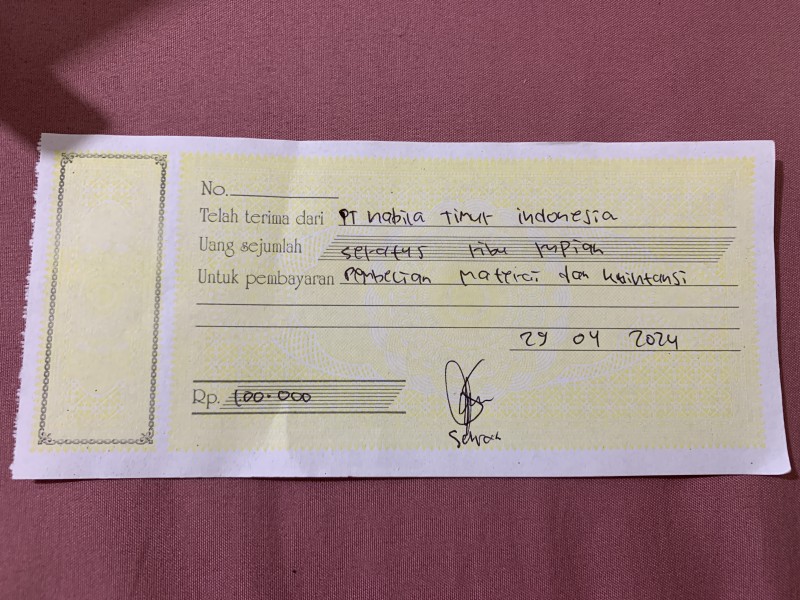 No.
Telah terima dari PT nabila timur indonesia
Uang sejumlah seratus ribu rupiah
Untuk pembayaran pembelian materai dan kwintansi
29 04 2024
Rp. 100.000